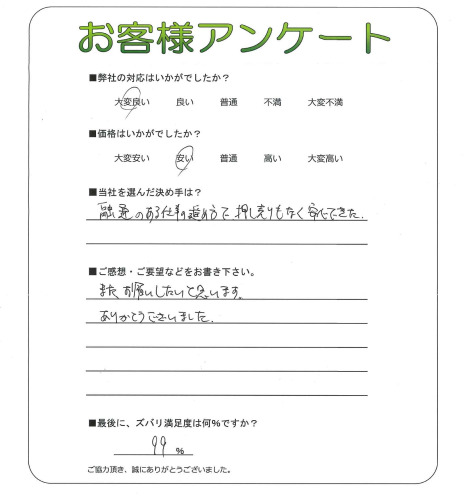 お客様アンケート
■弊社の対応はいかがでしたか？
大変良い 良い 普通 不満 大変不満
■価格はいかがでしたか？
大変安い 安い 普通 高い 大変高い
■当社を選んだ決め手は？
融通のある仕事の進め方で押し売りもなく安心できた.
■ご感想・ご要望などをお書き下さい。
また お願いしたいと思います。
ありがとうございました.
■最後に、ズバリ満足度は何％ですか？
99 %
ご協力頂き、誠にありがとうございました。